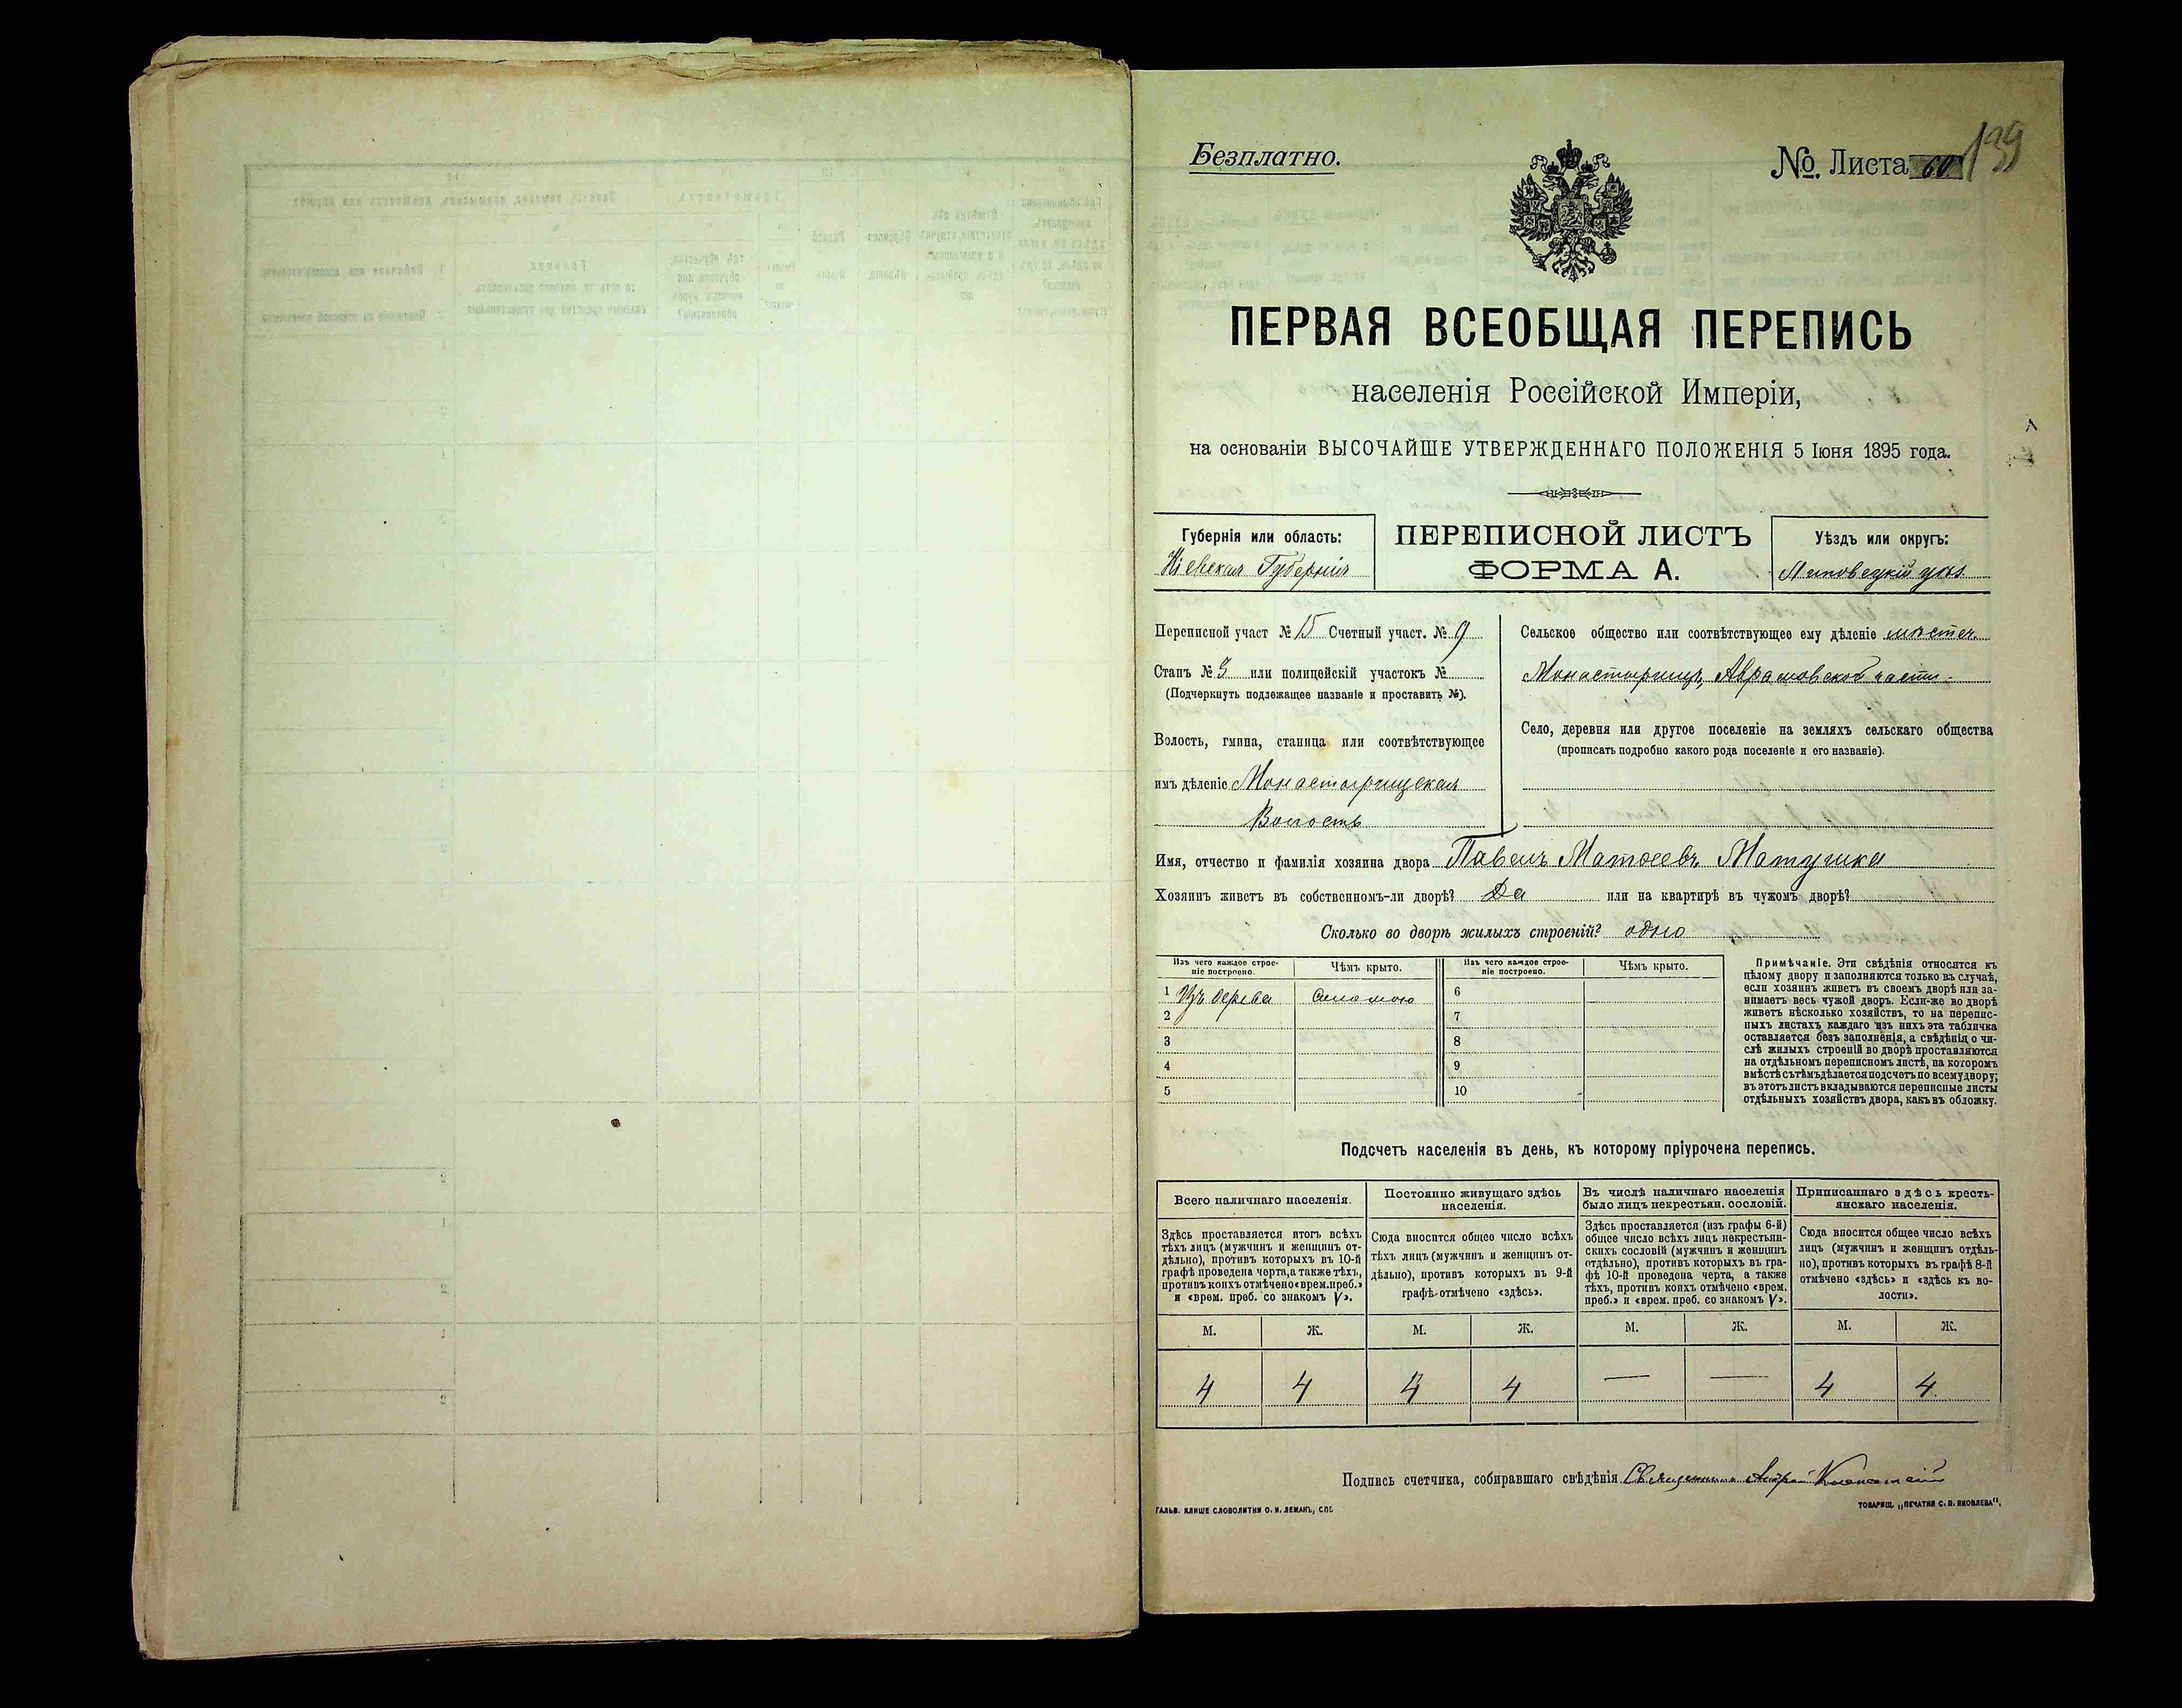 Безплатно.
№. Листа 60
139
ПЕРВАЯ ВСЕОБЩАЯ ПЕРЕПИСЬ
населенія Россійской Имперіи,
на основаніи ВЫСОЧАЙШЕ УТВЕРЖДЕННАГО ПОЛОЖЕНІЯ 5 Іюня 1895 года.
Губернія или область:
Кіевская Губернія
ПЕРЕПИСНОЙ ЛИСТЪ
ФОРМА А.
Уѣздъ или округъ:
Липовецкій уѣз.
Переписной участ № 15 Счетный участ. № 9
Станъ № 3 или полицейскій участокъ №
(Подчеркнуть подлежащее названіе и проставить №).
Волость, гмина, станица или соотвѣтствующее
имъ дѣленіе Монастырищская
Волость
Сельское общество или соотвѣтствующее ему дѣленіе мѣстеч.
Монастырищъ, Аврамовской части
Село, деревня или другое поселеніе на земляхъ сельскаго общества
(прописать подробно какого рода поселеніе и его названіе).
Имя, отчество и фамилія хозяина двора Павелъ Матвеевъ Матушка
Хозяинъ живетъ въ собственномъ-ли дворѣ? Да или на квартирѣ въ чужомъ дворѣ?
Сколько во дворѣ жилыхъ строеній? одно
Изъ чего каждое строе-
ніе построено.
Чѣмъ крыто.
Изъ чего каждое строе-
ніе построено.
Чѣмъ крыто.
1 Изъ дерева соломою 6
2 7
3 8
4 9
5 10
Примѣчаніе. Эти свѣдѣнія относятся къ
цѣлому двору и заполняются только въ случаѣ,
если хозяинъ живетъ въ своемъ дворѣ или за-
нимаетъ весь чужой дворъ. Если-же во дворѣ
живетъ нѣсколько хозяйствъ, то на перепис-
ныхъ листахъ каждаго изъ нихъ эта табличка
оставляется безъ заполненія, а свѣдѣнія о чи-
слѣ жилыхъ строеній во дворѣ проставляются
на отдѣльномъ переписномъ листѣ, на которомъ
вмѣстѣ съ тѣмъ дѣлается подсчетъ по всему двору;
въ этотъ листъ вкладываются переписные листы
отдѣльныхъ хозяйствъ двора, какъ въ обложку.
Подсчетъ населенія въ день, къ которому пріурочена перепись.
Всего наличнаго населенія.
Здѣсь проставляется итогъ всѣхъ
тѣхъ лицъ (мужчинъ и женщинъ от-
дѣльно), противъ которыхъ въ 10-й
графѣ проведена черта, а также тѣхъ,
противъ коихъ отмѣчено «врем. преб.»
и «врем. преб. со знакомъ V».
Постоянно живущаго здѣсь
населенія.
Сюда вносится общее число всѣхъ
тѣхъ лицъ (мужчинъ и женщинъ от-
дѣльно), противъ которыхъ въ 9-й
графѣ отмѣчено «здѣсь».
Въ числѣ наличнаго населенія
было лицъ некрестьян. сословій.
Здѣсь проставляется (изъ графы 6-й)
общее число всѣхъ лицъ некрестьян-
скихъ сословій (мужчинъ и женщинъ
отдѣльно), противъ которыхъ въ гра-
фѣ 10-й проведена черта, а также
тѣхъ, противъ коихъ отмѣчено «врем.
преб.» и «врем. преб. со знакомъ V».
Приписаннаго здѣсь кресть-
янскаго населенія.
Сюда вносится общее число всѣхъ
лицъ (мужчинъ и женщинъ отдѣль-
но), противъ которыхъ въ графѣ 8-й
отмѣчено «здѣсь» и «здѣсь къ во-
лости».
М. Ж. М. Ж. М. Ж. М. Ж.
4 4 4 4 — — 4 4
Подпись счетчика, собиравшаго свѣдѣнія Священникъ Андрей
ГАЛЬВ. КЛИШЕ СЛОВОЛИТНИ О. И. ЛЕМАНЪ, СПБ
ТОВАРИЩ. „ПЕЧАТНЯ С. П. ЯКОВЛЕВА".